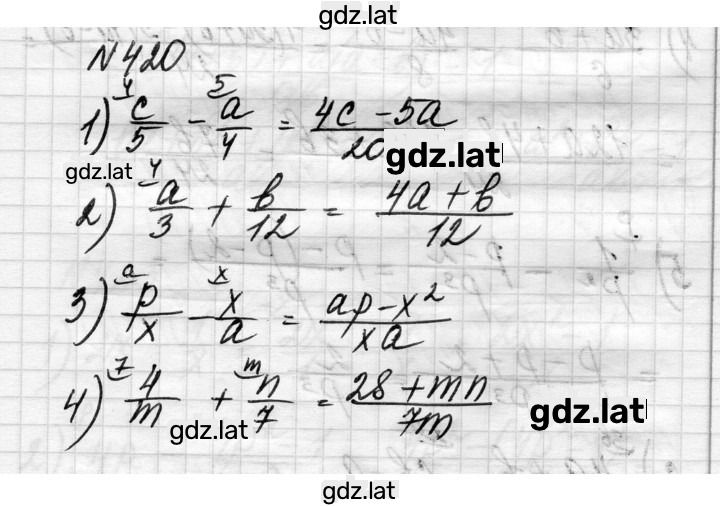 gdz.lat
N 420
1) ⁴⁾c/5 - ⁵⁾a/4 = (4c - 5a)/20
gdz.lat
gdz.lat
2) ⁴⁾a/3 + b/12 = (4a + b)/12
3) ᵃ⁾p/x - ˣ⁾x/a = (ap - x²)/xa
4) ⁷⁾4/m + ᵐ⁾n/7 = (28 + mn)/7m
gdz.lat
gdz.lat
gdz.lat